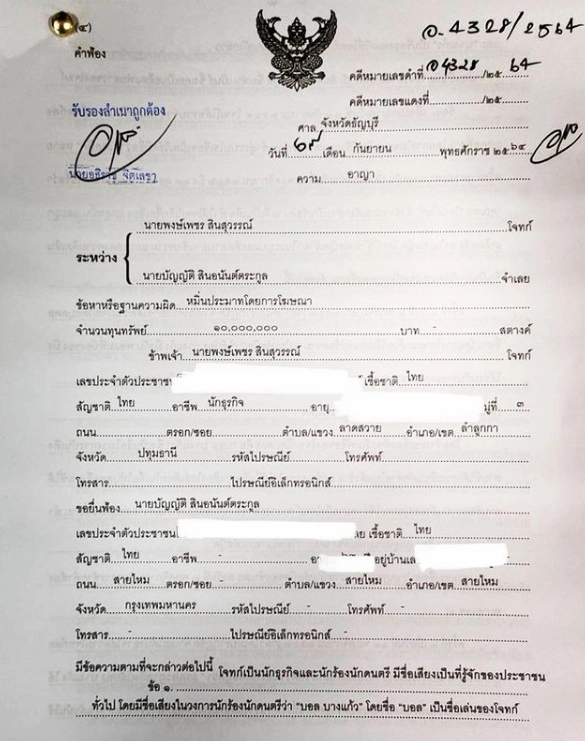 (๔)
อ. 4328/2564
คำฟ้อง
คดีหมายเลขดำที่ อ4328 /๒๕ 64
คดีหมายเลขแดงที่ /๒๕
รับรองสำเนาถูกต้อง
ศาล จังหวัดธัญบุรี
วันที่ เดือน กันยายน พุทธศักราช ๒๕๖๔
ความ อาญา
นายพงษ์เพชร สินสุวรรณ์ โจทก์
ระหว่าง
นายบัญญัติ สินอนันต์ตระกูล จำเลย
ข้อหาหรือฐานความผิด หมิ่นประมาทโดยการโฆษณา
จำนวนทุนทรัพย์ ๑๐,๐๐๐,๐๐๐ บาท - สตางค์
ข้าพเจ้า นายพงษ์เพชร สินสุวรรณ์ โจทก์
เลขประจำตัวประชาชน เชื้อชาติ ไทย
สัญชาติ ไทย อาชีพ นักธุรกิจ อายุ หมู่ที่ ๓
ถนน ตรอก/ซอย ตำบล/แขวง ลาดสวาย อำเภอ/เขต ลำลูกกา
จังหวัด ปทุมธานี รหัสไปรษณีย์ โทรศัพท์
โทรสาร ไปรษณีย์อิเล็กทรอนิกส์
ขอยื่นฟ้อง นายบัญญัติ สินอนันต์ตระกูล
เลขประจำตัวประชาชน เชื้อชาติ ไทย
สัญชาติ ไทย อาชีพ - อยู่บ้านเล
ถนน สายไหม ตรอก/ซอย - ตำบล/แขวง สายไหม อำเภอ/เขต สายไหม
จังหวัด กรุงเทพมหานคร รหัสไปรษณีย์ - โทรศัพท์ -
โทรสาร - ไปรษณีย์อิเล็กทรอนิกส์ -
มีข้อความตามที่จะกล่าวต่อไปนี้
ข้อ ๑. โจทก์เป็นนักธุรกิจและนักร้องนักดนตรี มีชื่อเสียงเป็นที่รู้จักของประชาชน
ทั่วไป โดยมีชื่อเสียงในวงการนักร้องนักดนตรีว่า "บอล บางแก้ว" โดยชื่อ "บอล" เป็นชื่อเล่นของโจทก์